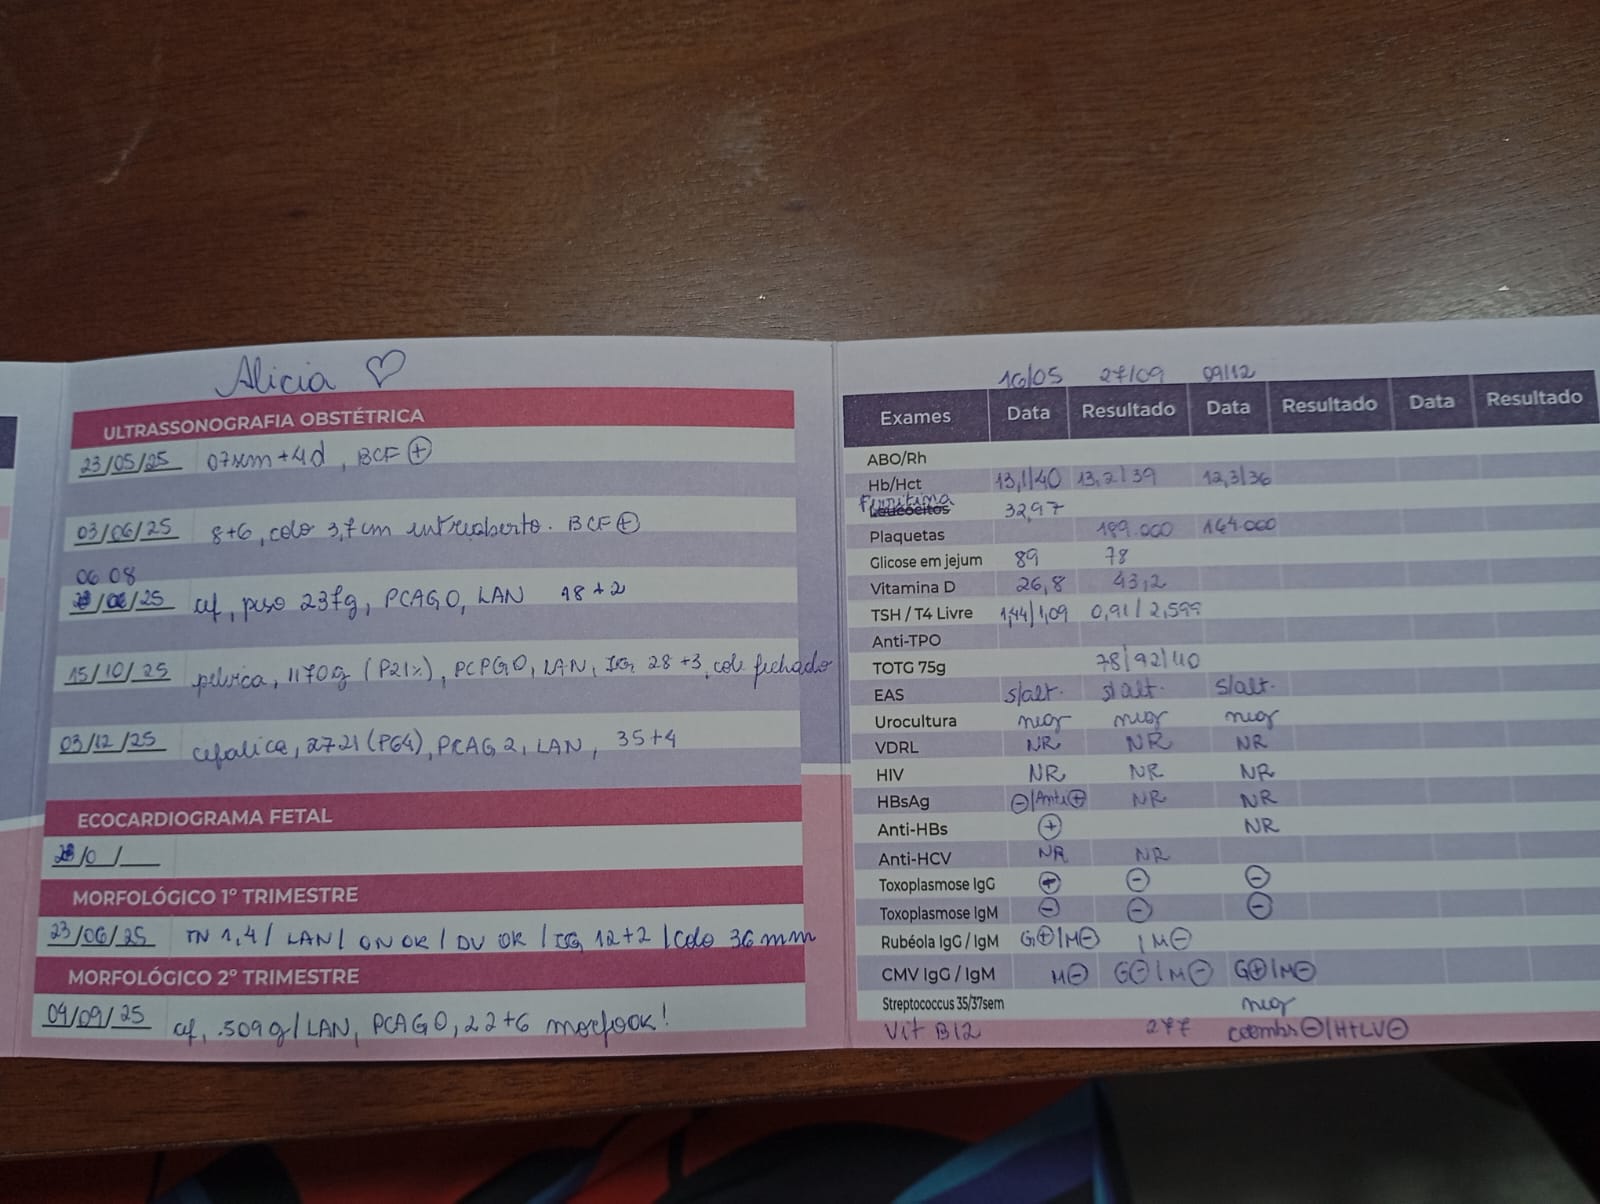 Alicia ♡
ULTRASSONOGRAFIA OBSTÉTRICA
23/05/25 07sem+4d, BCF ⊕
03/06/25 8+6, colo 3,7cm entreaberto. BCF ⊕
06 08
/25 cef, peso 237g, PCAG0, LAN 18+2
15/10/25 pélvica, 1170g (P21%), PCPG0, LAN, IG 28+3, colo fechado
03/12/25 cefalica, 2721 (P64), PCAG2, LAN, 35+4
ECOCARDIOGRAMA FETAL
/0 /
MORFOLÓGICO 1º TRIMESTRE
23/06/25 TN 1,4 / LAN / ON OK / DV OK / IG 12+2 / Colo 36mm
MORFOLÓGICO 2º TRIMESTRE
04/09/25 cef, 509g / LAN, PCAG0, 22+6 morfo OK!
16/05 27/09 09/12
Exames Data Resultado Data Resultado Data Resultado
ABO/Rh
Hb/Hct 13,1/40 13,2/39 12,3/36
Ferritina 32,97
Leucócitos
Plaquetas 189.000 164.000
Glicose em jejum 89 78
Vitamina D 26,8 43,2
TSH / T4 Livre 1,44/1,09 0,91/2,599
Anti-TPO
TOTG 75g 78/92/110
EAS s/alt. s/alt. s/alt.
Urocultura neg neg neg
VDRL NR NR NR
HIV NR NR NR
HBsAg ⊖/Anti ⊕ NR NR
Anti-HBs ⊕ NR
Anti-HCV NR NR
Toxoplasmose IgG ⊕ ⊖ ⊖
Toxoplasmose IgM ⊖ ⊖ ⊖
Rubéola IgG / IgM G⊕/M⊖ / M⊖
CMV IgG / IgM M⊖ G⊖/M⊖ G⊕/M⊖
Streptococcus 35/37sem neg
Vit B12 277 coombs ⊖/HTLV⊖